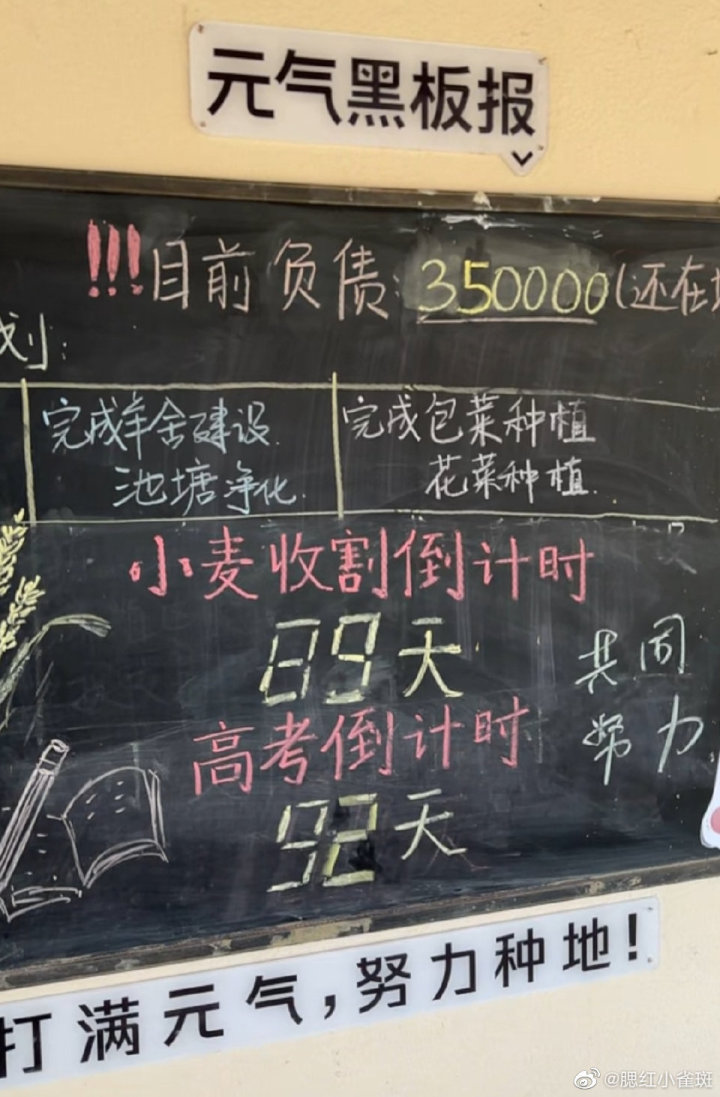 元气黑板报
!!!目前负债:350000(还在
划:
完成羊舍建设
池塘净化
完成包菜种植
花菜种植
小麦收割倒计时
89天
高考倒计时
92天
共同
努力
打满元气,努力种地!
@腮红小雀斑